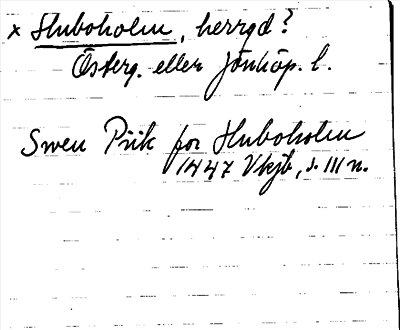 x Huboholm, herrgd?
Österg. eller Jönköp. l.
Swen Pük for Huboholm
1447 Vkjb, s. 111 n.